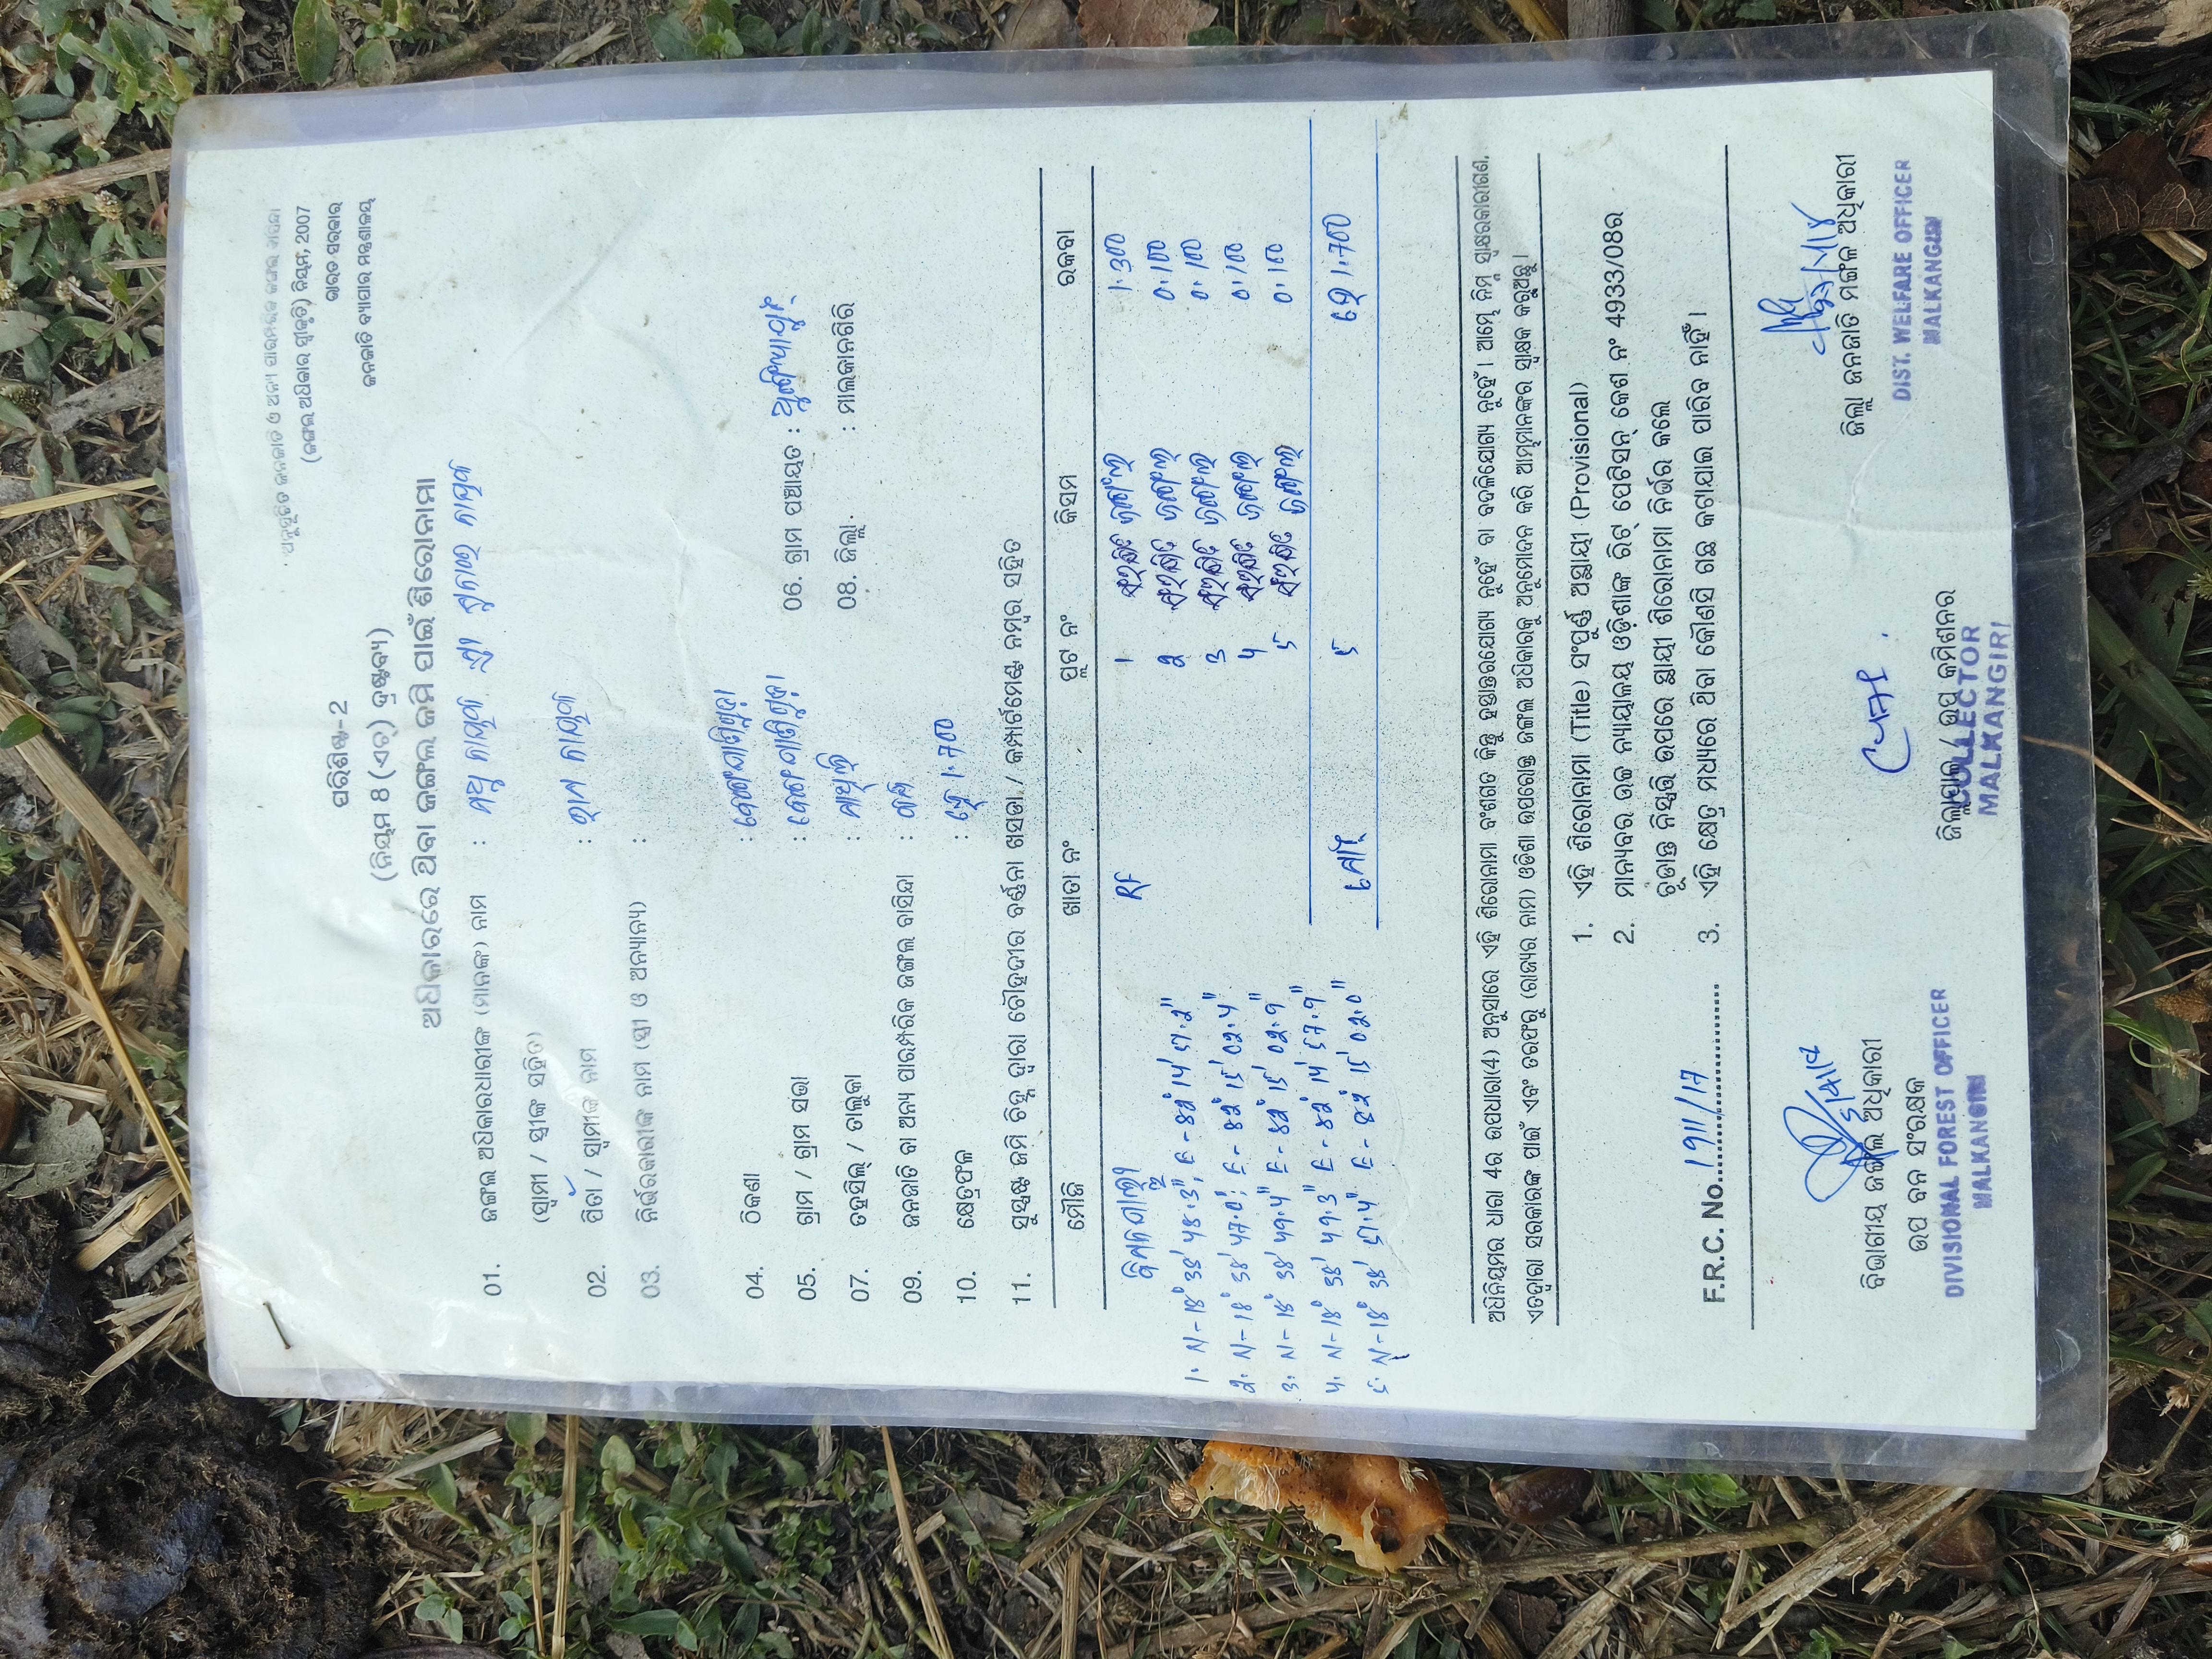 ଅନୁସୂଚିତ ଜନଜାତି ଓ ଅନ୍ୟ ପାରମ୍ପରିକ ଜଙ୍ଗଲ ବାସିନ୍ଦା
(ଜଙ୍ଗଲ ଅଧିକାର ସ୍ୱୀକୃତି) ନିୟମ, 2007
ଭାରତ ସରକାର
ଜନଜାତି ବ୍ୟାପାର ମନ୍ତ୍ରଣାଳୟ
ପରିଶିଷ୍ଟ-2
(ନିୟମ 8 (ଏଚ୍) ଦ୍ରଷ୍ଟବ୍ୟ)
ଅଧିକାରରେ ଥିବା ଜଙ୍ଗଲ ଜମି ପାଇଁ ଶିରୋନାମା
01. ଜଙ୍ଗଲ ଅଧିକାରଧାରୀଙ୍କ (ମାନଙ୍କ) ନାମ :
(ସ୍ୱାମୀ / ସ୍ତ୍ରୀଙ୍କ ସହିତ)
02. ପିତା / ସ୍ୱାମୀଙ୍କ ନାମ :
03. ନିର୍ଭରକାରୀଙ୍କ ନାମ (ସ୍ତ୍ରୀ ଓ ଅନ୍ୟାନ୍ୟ) :
04. ଠିକଣା :
05. ଗ୍ରାମ / ଗ୍ରାମ ସଭା : 06. ଗ୍ରାମ ପଞ୍ଚାୟତ :
07. ତହସିଲ୍ / ତାଲୁକା : 08. ଜିଲ୍ଲା : ମାଲକାନଗିରି
09. ଜନଜାତି ବା ଅନ୍ୟ ପାରମ୍ପରିକ ଜଙ୍ଗଲ ବାସିନ୍ଦା :
10. କ୍ଷେତ୍ରଫଳ : ହେ 1.700
11. ସୁସ୍ପଷ୍ଟ ଜମି ଚିହ୍ନ ଦ୍ୱାରା ଚୌହଦୀର ବର୍ଣ୍ଣନା ଖସଡା / କମ୍ପାର୍ଟମେଣ୍ଟ ନମ୍ବର ସହିତ
ମୌଜି ଖାତା ନଂ ପ୍ଲଟ ନଂ କିସମ ରକବା
RF 1 ଜଙ୍ଗଲ 1.300
1. N-18° 35' 48.3", E-82° 14' 57.2" 2 ଜଙ୍ଗଲ 0.100
2. N-18° 35' 47.0", E-82° 15' 02.4" 3 ଜଙ୍ଗଲ 0.100
3. N-18° 35' 49.4" E-82° 15' 02.9" 4 ଜଙ୍ଗଲ 0.100
4. N-18° 35' 49.3" E-82° 14' 57.9" 5 ଜଙ୍ଗଲ 0.100
5. N-18° 35' 51.4" E-82° 15' 02.0" ମୋଟ 5 ହେ 1.700
ଅଧିନିୟମର ଧାରା 4ର ଉପଧାରା(4) ଅନୁସାରେ ଏହି ଶିରୋନାମା ବଂଶଗତ କିନ୍ତୁ ହସ୍ତାନ୍ତରଯୋଗ୍ୟ ନୁହେଁ ବା ବଦଳିଯୋଗ୍ୟ ନୁହେଁ । ଆମ୍ଭେ ନିମ୍ନ ସ୍ୱାକ୍ଷରକାରୀଗଣ,
ଏତଦ୍ୱାରା ସରକାରଙ୍କ ପାଇଁ ଏବଂ ତରଫରୁ (ରାଜ୍ୟର ନାମ) ଓଡିଶା ଉପରୋକ୍ତ ଜଙ୍ଗଲ ଅଧିକାରକୁ ଅନୁମୋଦନ କରି ଆମ୍ଭମାନଙ୍କର ସ୍ୱାକ୍ଷର କରୁଅଛୁ ।
1. ଏହି ଶିରୋନାମା (Title) ସଂପୂର୍ଣ୍ଣ ଅସ୍ଥାୟୀ (Provisional)
2. ମାନ୍ୟବର ଉଚ୍ଚ ନ୍ୟାୟାଳୟ ଓଡ଼ିଶାଙ୍କ ରିଟ୍ ପେଟିସନ୍ କେଶ ନଂ 4933/08ର
ଚୂଡାନ୍ତ ନିଷ୍ପତ୍ତି ଉପରେ ସ୍ଥାୟୀ ଶିରୋନାମା ନିର୍ଭର କଲେ
F.R.C. No. 1911/17 3. ଏହି କ୍ଷେତ୍ର ମଧ୍ୟରେ ଥିବା କୌଣସି ଗଛ କଟାଯାଇ ପାରିବ ନାହିଁ ।
ବିଭାଗୀୟ ଜଙ୍ଗଲ ଅଧିକାରୀ
ଉପ ବନ ସଂରକ୍ଷକ
DIVISIONAL FOREST OFFICER
MALKANGIRI
ଜିଲ୍ଲାପାଳ / ଉପ କମିଶନର
COLLECTOR
MALKANGIRI
ଜିଲ୍ଲା ଜନଜାତି ମଙ୍ଗଳ ଅଧିକାରୀ
DIST. WELFARE OFFICER
MALKANGIRI